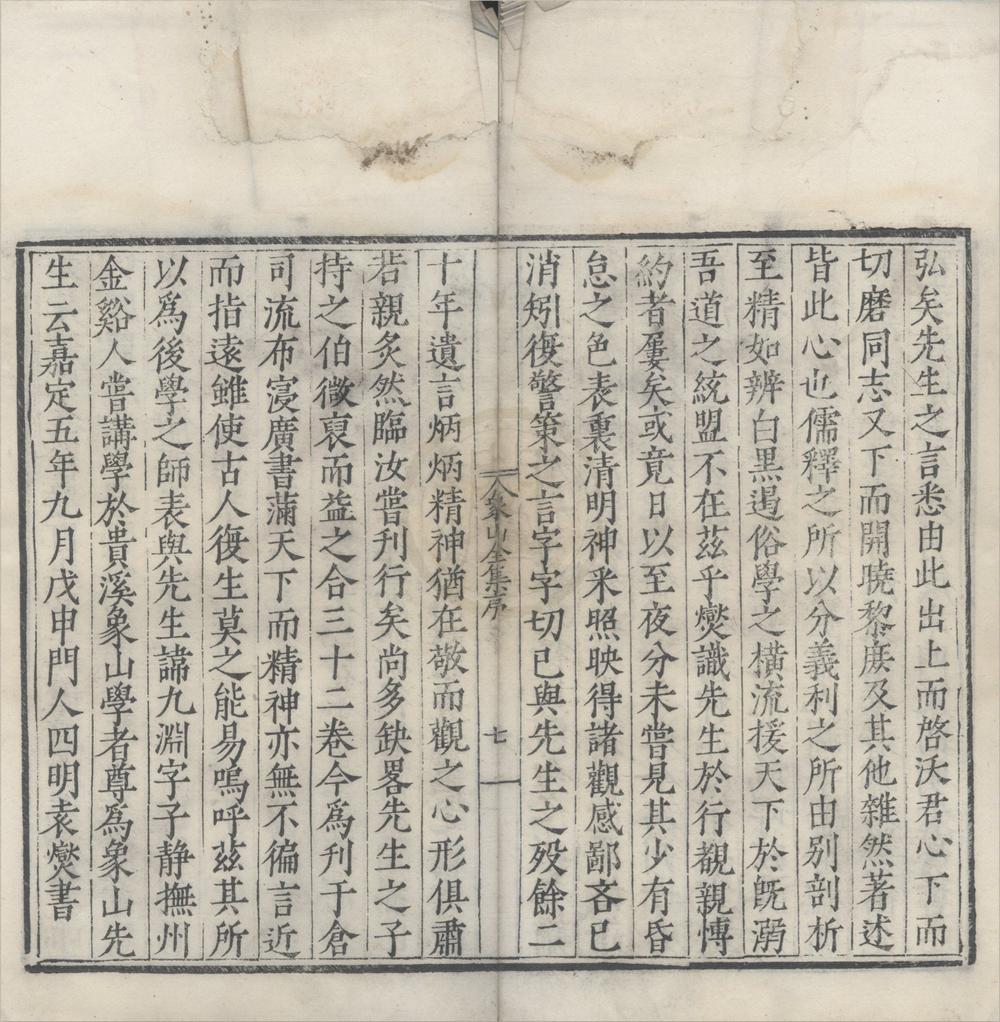 弘矣先生之言悉由此出上而啓沃君心下而
切磨同志又下而開曉黎庶及其他雜然著述
皆此心也儒釋之所以分義利之所由别剖析
至精如辨白黒遏俗學之橫流援天下於旣溺
吾道之統盟不在茲乎爕識先生於行都親愽
約者屢矣或竟日以至夜分未嘗見其少有昏
怠之色表裏清明神采照映得諸觀感鄙吝已
消矧復警策之言字字切已與先生之歿餘二
象山全集序
七
十年遺言炳炳精神猶在敬而觀之心形俱肅
若親炙然臨汝嘗刊行矣尚多缺畧先生之子
持之伯微裒而益之合三十二卷今爲刊于倉
司流布寖廣書滿天下而精神亦無不徧言近
而指遠雖使古人復生莫之能易嗚呼茲其所
以爲後學之師表與先生諱九淵字子靜撫州
金谿人嘗講學於貴溪象山學者尊爲象山先
生云嘉定五年九月戊申門人四明袁爕書